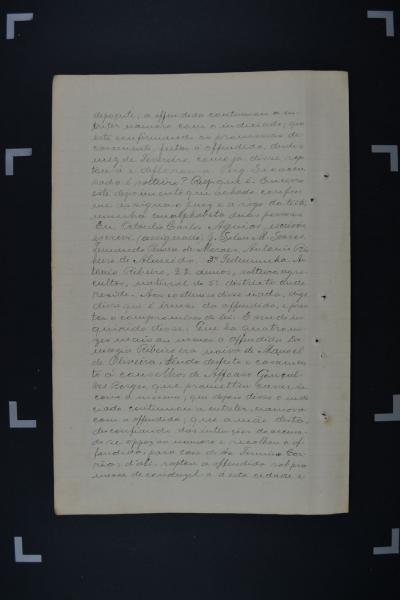 depoente, a offendida continuou a en-
treter namoro com o indiciado; que
este confirmando as promessas de
casamento, feitas á offendida, desde o
mez de Fevereiro, como já disse, rap-
tou-a e deflorou-a. Perg. Si o accu-
sado é solteiro? Resp. que é. Encerro
este depoimento que achado confor-
me assigna o juiz e a rogo da teste-
munha analphabeta duas pessoas
Eu, Octavilio Carlos Aquino, escrivão
escrevi. (assignado) J. M. Soares
Fernando de Moraes, Antonio Ri-
beiro de Almeida. 3ª Testemunha. An-
tonio Ribeiro, 22 annos, solteiro, agri-
cultor, natural do 5º districto onde
reside. Aos costumes disse nada, digo
disse que é irmão da offendida, e pres-
tou o compromisso da lei. E sendo in-
quirido disse: Que ha quatro me-
zes mais ou menos a offendida Do-
Ribeiro era noiva de Manoel
de Oliveira, tendo desfeito o casamen-
to á conselhos de Affonso Gonçal-
ves Borges, que prometteu casar-se
com a mesma; que depois disso o indi-
ciado continuou a entreter namoro
com a offendida; que a mãe desta,
desconfiando das intenções do accusa-
do se oppoz ao namoro e recolheu a of-
fendida para casa de Firmino Cor-
rêa; d'ali, raptou a offendida sob pro-
messa de conduzil-a a esta cidade e